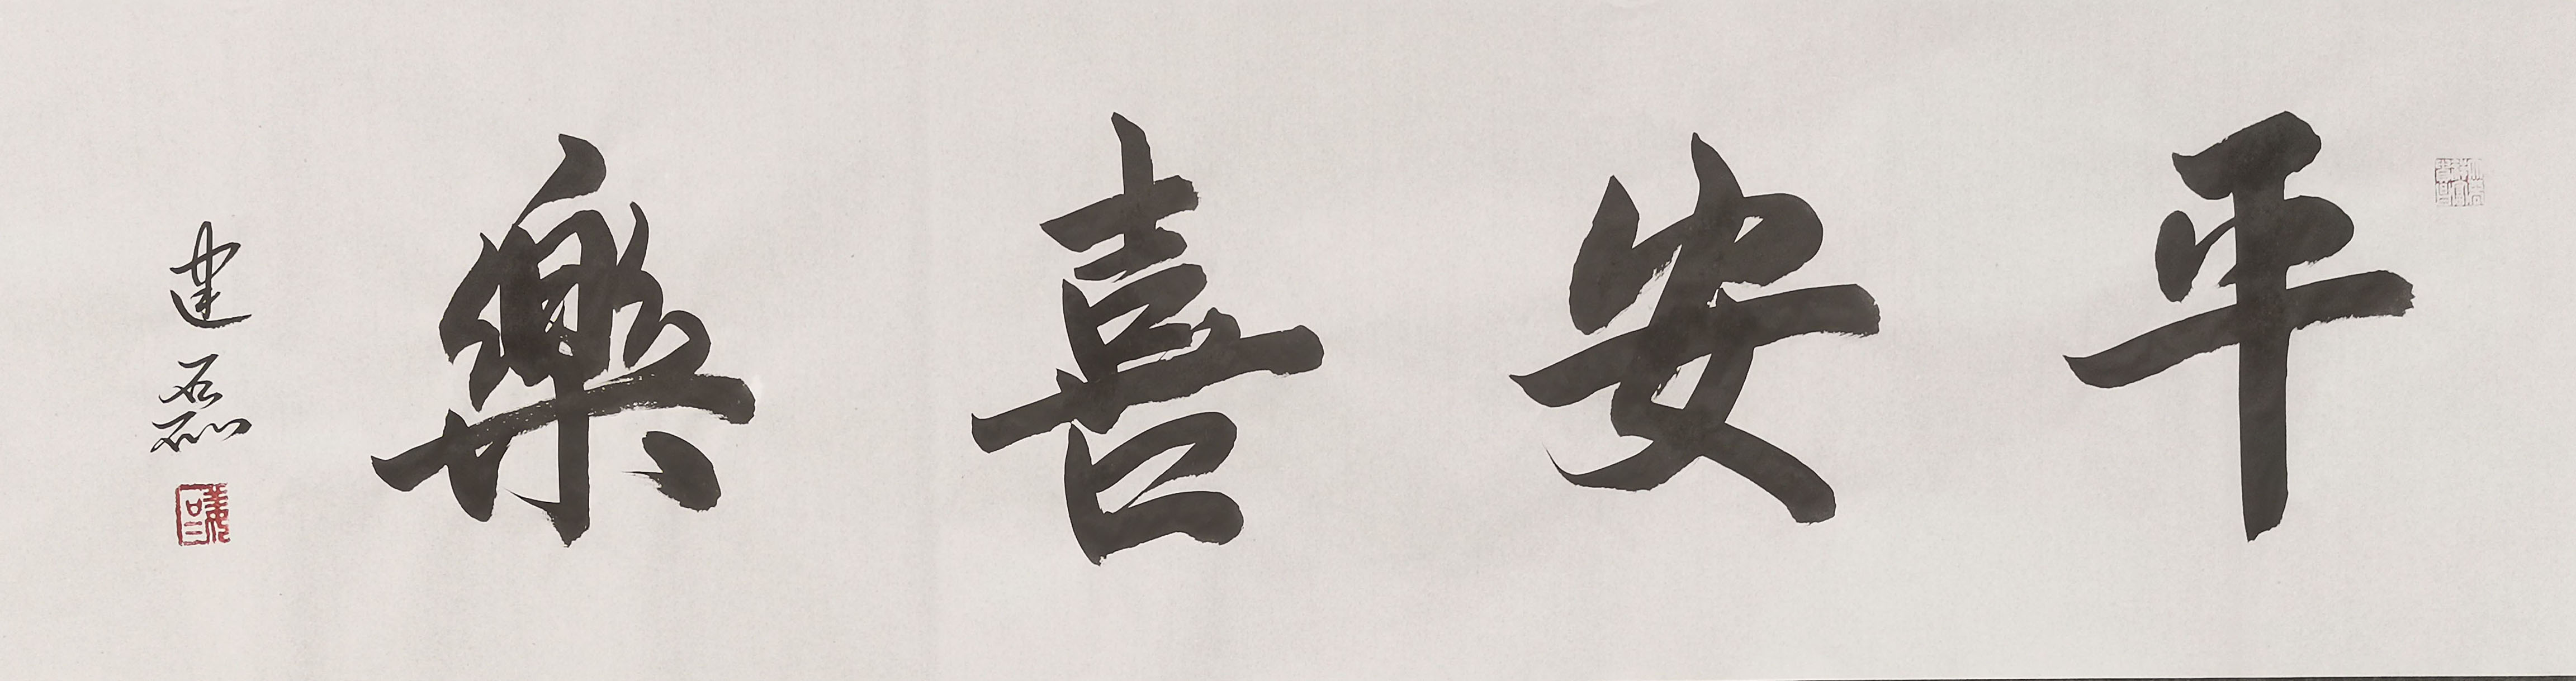 平安喜樂
建磊